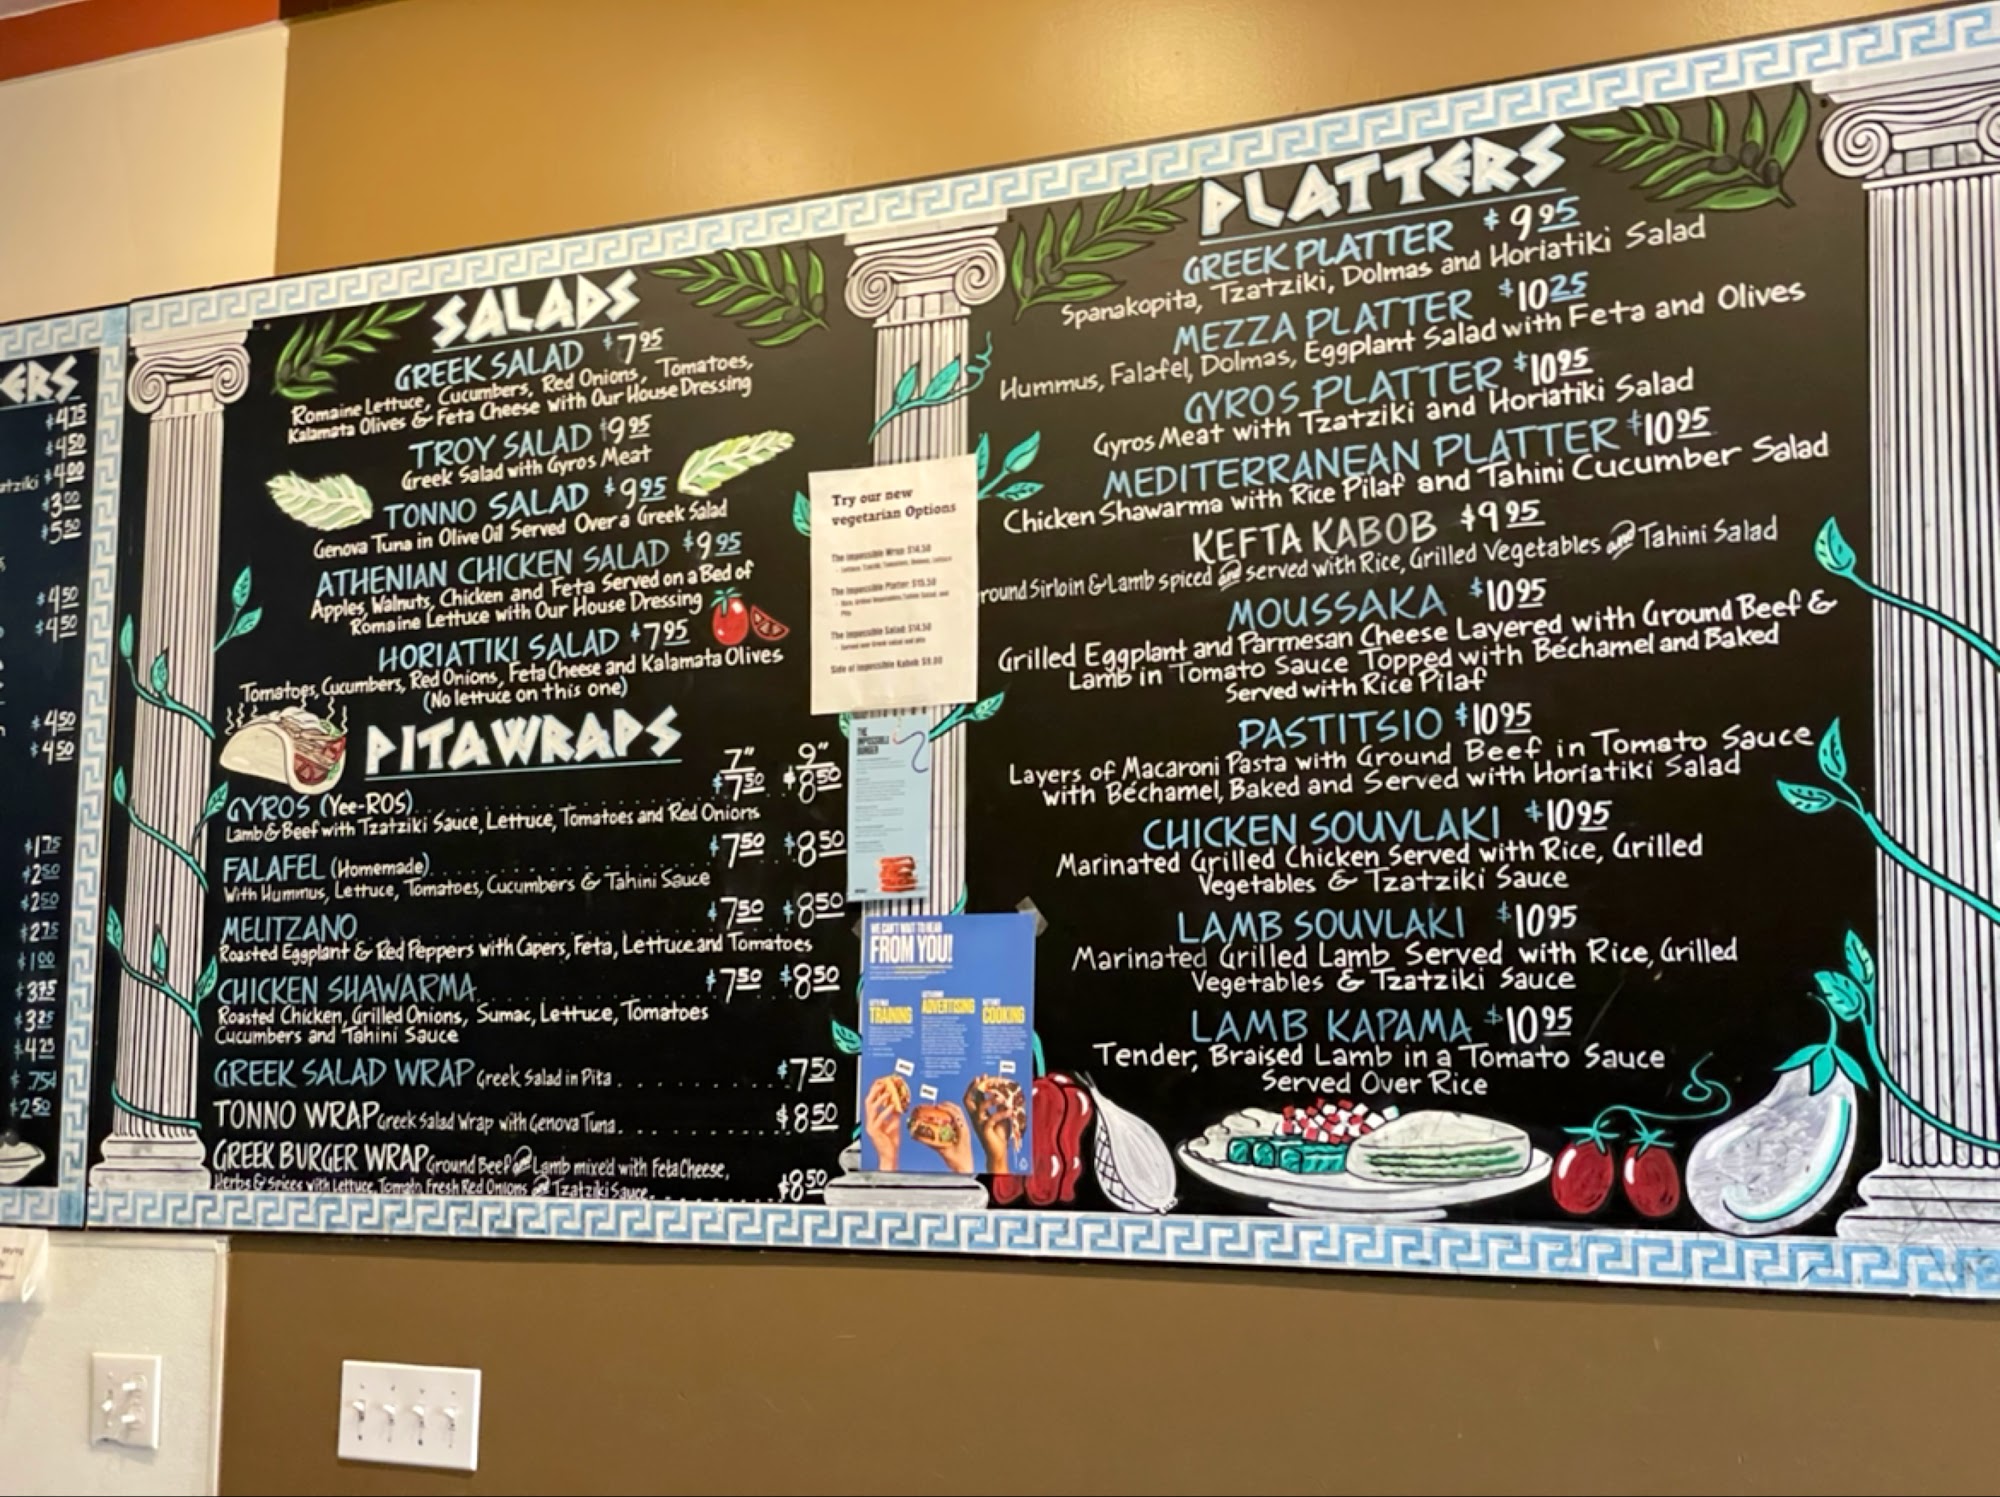 ERS
$4.75
$4.50
atziki $4.00
$3.00
$5.50
$4.50
$4.50
$4.50
$4.50
$1.75
$2.50
$2.50
$2.75
$1.00
$3.75
$3.25
$4.25
$.75¢
$2.50
SALADS
GREEK SALAD $7.95
Romaine Lettuce, Cucumbers, Red Onions, Tomatoes,
Kalamata Olives & Feta Cheese with Our House Dressing
TROY SALAD $9.95
Greek Salad with Gyros Meat
TONNO SALAD $9.95
Genova Tuna in Olive Oil Served Over a Greek Salad
ATHENIAN CHICKEN SALAD $9.95
Apples, Walnuts, Chicken and Feta Served on a Bed of
Romaine Lettuce with Our House Dressing
HORIATIKI SALAD $7.95
Tomatoes, Cucumbers, Red Onions, Feta Cheese and Kalamata Olives
(No lettuce on this one)
PITA WRAPS
7" 9"
GYROS (Yee-ROS) $7.50 $8.50
Lamb & Beef with Tzatziki Sauce, Lettuce, Tomatoes and Red Onions
FALAFEL (Homemade) $7.50 $8.50
With Hummus, Lettuce, Tomatoes, Cucumbers & Tahini Sauce
MELITZANO $7.50 $8.50
Roasted Eggplant & Red Peppers with Capers, Feta, Lettuce and Tomatoes
CHICKEN SHAWARMA $7.50 $8.50
Roasted Chicken, Grilled Onions, Sumac, Lettuce, Tomatoes
Cucumbers and Tahini Sauce
GREEK SALAD WRAP Greek Salad in Pita $7.50
TONNO WRAP Greek Salad Wrap with Genova Tuna $8.50
GREEK BURGER WRAP Ground Beef and Lamb mixed with Feta Cheese,
Herbs & Spices with Lettuce, Tomato, Fresh Red Onions and Tzatziki Sauce $8.50
Try our new
vegetarian Options
The Impossible Wrap: $14.50
The Impossible Platter: $15.50
The Impossible Salad: $14.50
Side of Impossible Kabob: $9.00
THE
IMPOSSIBLE
BURGER
WE CAN'T WAIT TO HEAR
FROM YOU!
TRAINING
ADVERTISING
COOKING
PLATTERS
GREEK PLATTER $9.95
Spanakopita, Tzatziki, Dolmas and Horiatiki Salad
MEZZA PLATTER $10.25
Hummus, Falafel, Dolmas, Eggplant Salad with Feta and Olives
GYROS PLATTER $10.95
Gyros Meat with Tzatziki and Horiatiki Salad
MEDITERRANEAN PLATTER $10.95
Chicken Shawarma with Rice Pilaf and Tahini Cucumber Salad
KEFTA KABOB $9.95
round Sirloin & Lamb spiced and served with Rice, Grilled Vegetables and Tahini Salad
MOUSSAKA $10.95
Grilled Eggplant and Parmesan Cheese Layered with Ground Beef &
Lamb in Tomato Sauce Topped with Béchamel and Baked
Served with Rice Pilaf
PASTITSIO $10.95
Layers of Macaroni Pasta with Ground Beef in Tomato Sauce
with Béchamel, Baked and Served with Horiatiki Salad
CHICKEN SOUVLAKI $10.95
Marinated Grilled Chicken Served with Rice, Grilled
Vegetables & Tzatziki Sauce
LAMB SOUVLAKI $10.95
Marinated Grilled Lamb Served with Rice, Grilled
Vegetables & Tzatziki Sauce
LAMB KAPAMA $10.95
Tender, Braised Lamb in a Tomato Sauce
Served Over Rice